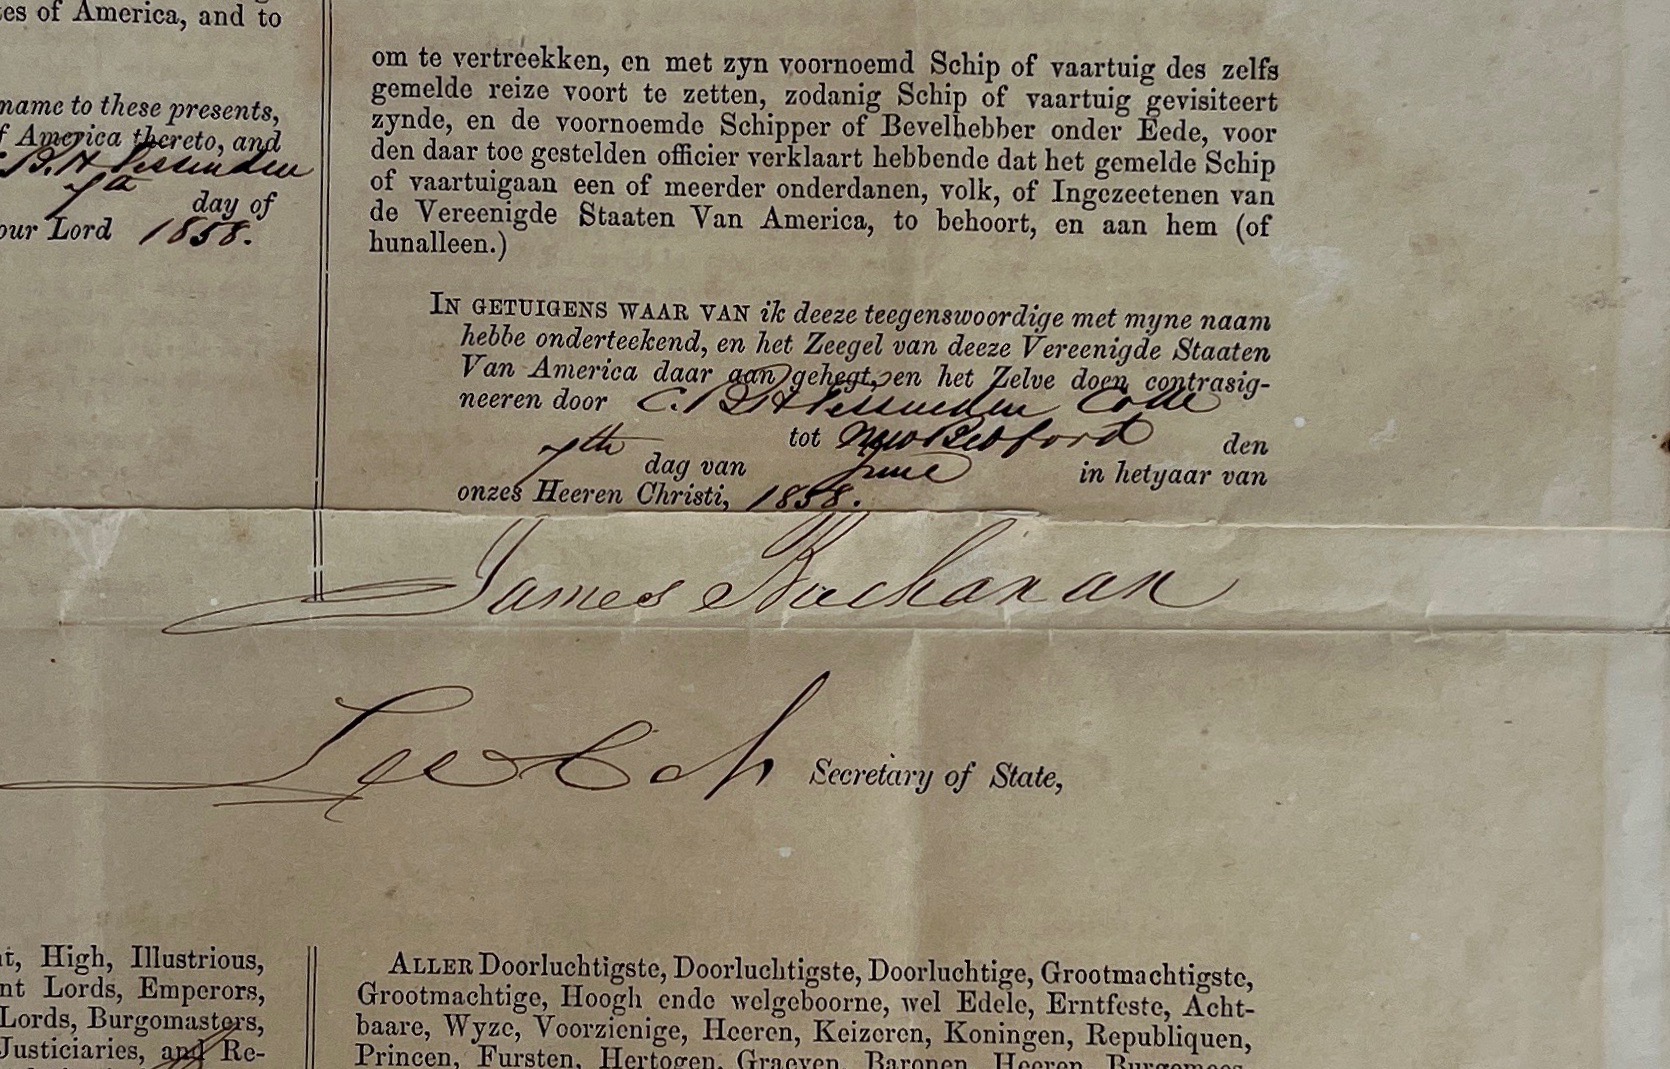 tes of America, and to
name to these presents,
f America thereto, and
B. H. Fessenden
7th
day of
our Lord 1858.
om te vertreekken, en met zyn voornoemd Schip of vaartuig des zelfs
gemelde reize voort te zetten, zodanig Schip of vaartuig gevisiteert
zynde, en de voornoemde Schipper of Bevelhebber onder Eede, voor
den daar toe gestelden officier verklaart hebbende dat het gemelde Schip
of vaartuigaan een of meerder onderdanen, volk, of Ingezeetenen van
de Vereenigde Staaten Van America, to behoort, en aan hem (of
hunalleen.)
IN GETUIGENS WAAR VAN ik deeze teegenswoordige met myne naam
hebbe onderteekend, en het Zeegel van deeze Vereenigde Staaten
Van America daar aan gehegt, en het Zelve doen contrasig-
neeren door C. B. H. Fessenden Coll
tot New Bedford den
7th dag van June in hetyaar van
onzes Heeren Christi, 1858.
James Buchanan
Lew Cass
Secretary of State,
t, High, Illustrious,
nt Lords, Emperors,
Lords, Burgomasters,
Justiciaries, and Re-
ALLER Doorluchtigste, Doorluchtigste, Doorluchtige, Grootmachtigste,
Grootmachtige, Hoogh ende welgeboorne, wel Edele, Erntfeste, Acht-
baare, Wyze, Voorzienige, Heeren, Keizeren, Koningen, Republiquen,
Princen, Fursten, Hertogen, Graeven, Baronen, Heeren, Burgomees-